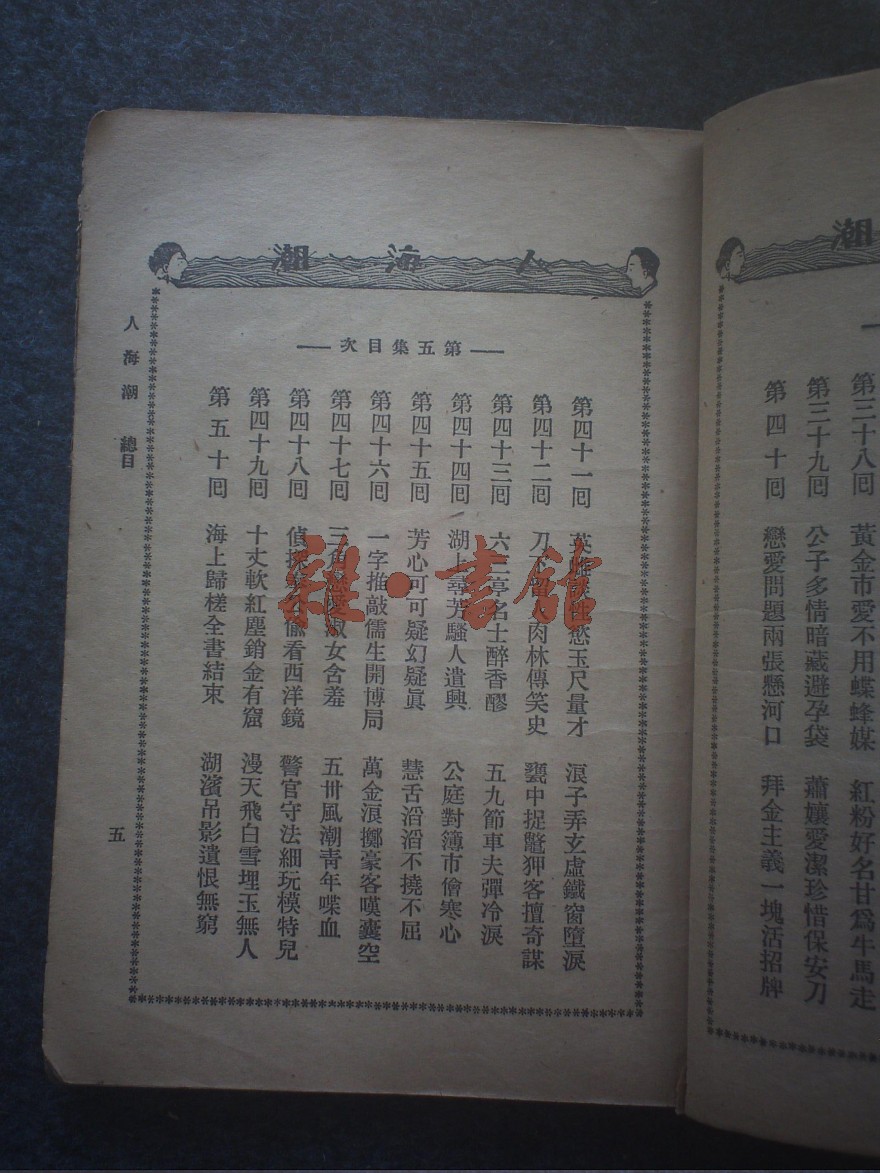 潮
第三十八囘 黃金市愛不用蝶蜂媒 紅粉好名甘爲牛馬走
第三十九囘 公子多情暗藏避孕袋 蕭孃愛潔珍惜保安刀
第四十囘 戀愛問題兩張懸河口 拜金主義一塊活招牌
人海潮
第五集目次
第四十一囘 英雌談性慾玉尺量才 浪子弄玄虛鐵窗墮淚
第四十二囘 刀下留人肉林傳笑史 甕中捉鼈狎客擅奇謀
第四十三囘 六三亭名士醉香醪 五九節車夫彈冷淚
第四十四囘 湖上尋芳騷人遣興 公庭對簿市儈寒心
第四十五囘 芳心可可疑幻疑眞 慧舌滔滔不撓不屈
第四十六囘 一字推敲儒生開博局 萬金浪擲豪客嘆囊空
第四十七囘 三角戀愛淑女含羞 五卅風潮青年喋血
第四十八囘 偵探偷看西洋鏡 警官守法細玩模特兒
第四十九囘 十丈軟紅塵銷金有窟 漫天飛白雪埋玉無人
第五十囘 海上歸槎全書結束 湖濱吊影遺恨無窮
人海潮 總目
五
雜·書館